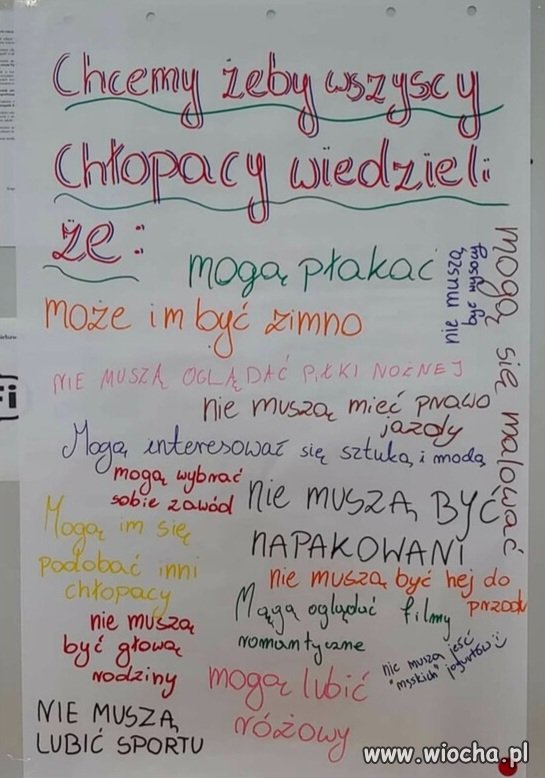 Chcemy żeby wszyscy
chłopacy wiedzieli
że:
mogą płakać
nie muszą
być wysocy
mogą się malować
może im być zimno
NIE MUSZĄ OGLĄDAĆ PIŁKI NOŻNEJ
nie muszą mieć prawo
jazdy
Mogą interesować się sztuką i modą
mogą wybrać
sobie zawód
NIE MUSZĄ BYĆ
NAPAKOWANI
Mogą im się
podobać inni
chłopacy
nie muszą być hej do
przodu
Mągą oglądać filmy
romantyczne
nie muszą
być głową
rodziny
nie muszą jeść
"męskich" jogurtów :)
mogą lubić
różowy
NIE MUSZĄ
LUBIĆ SPORTU
Fi
www.wiocha.pl